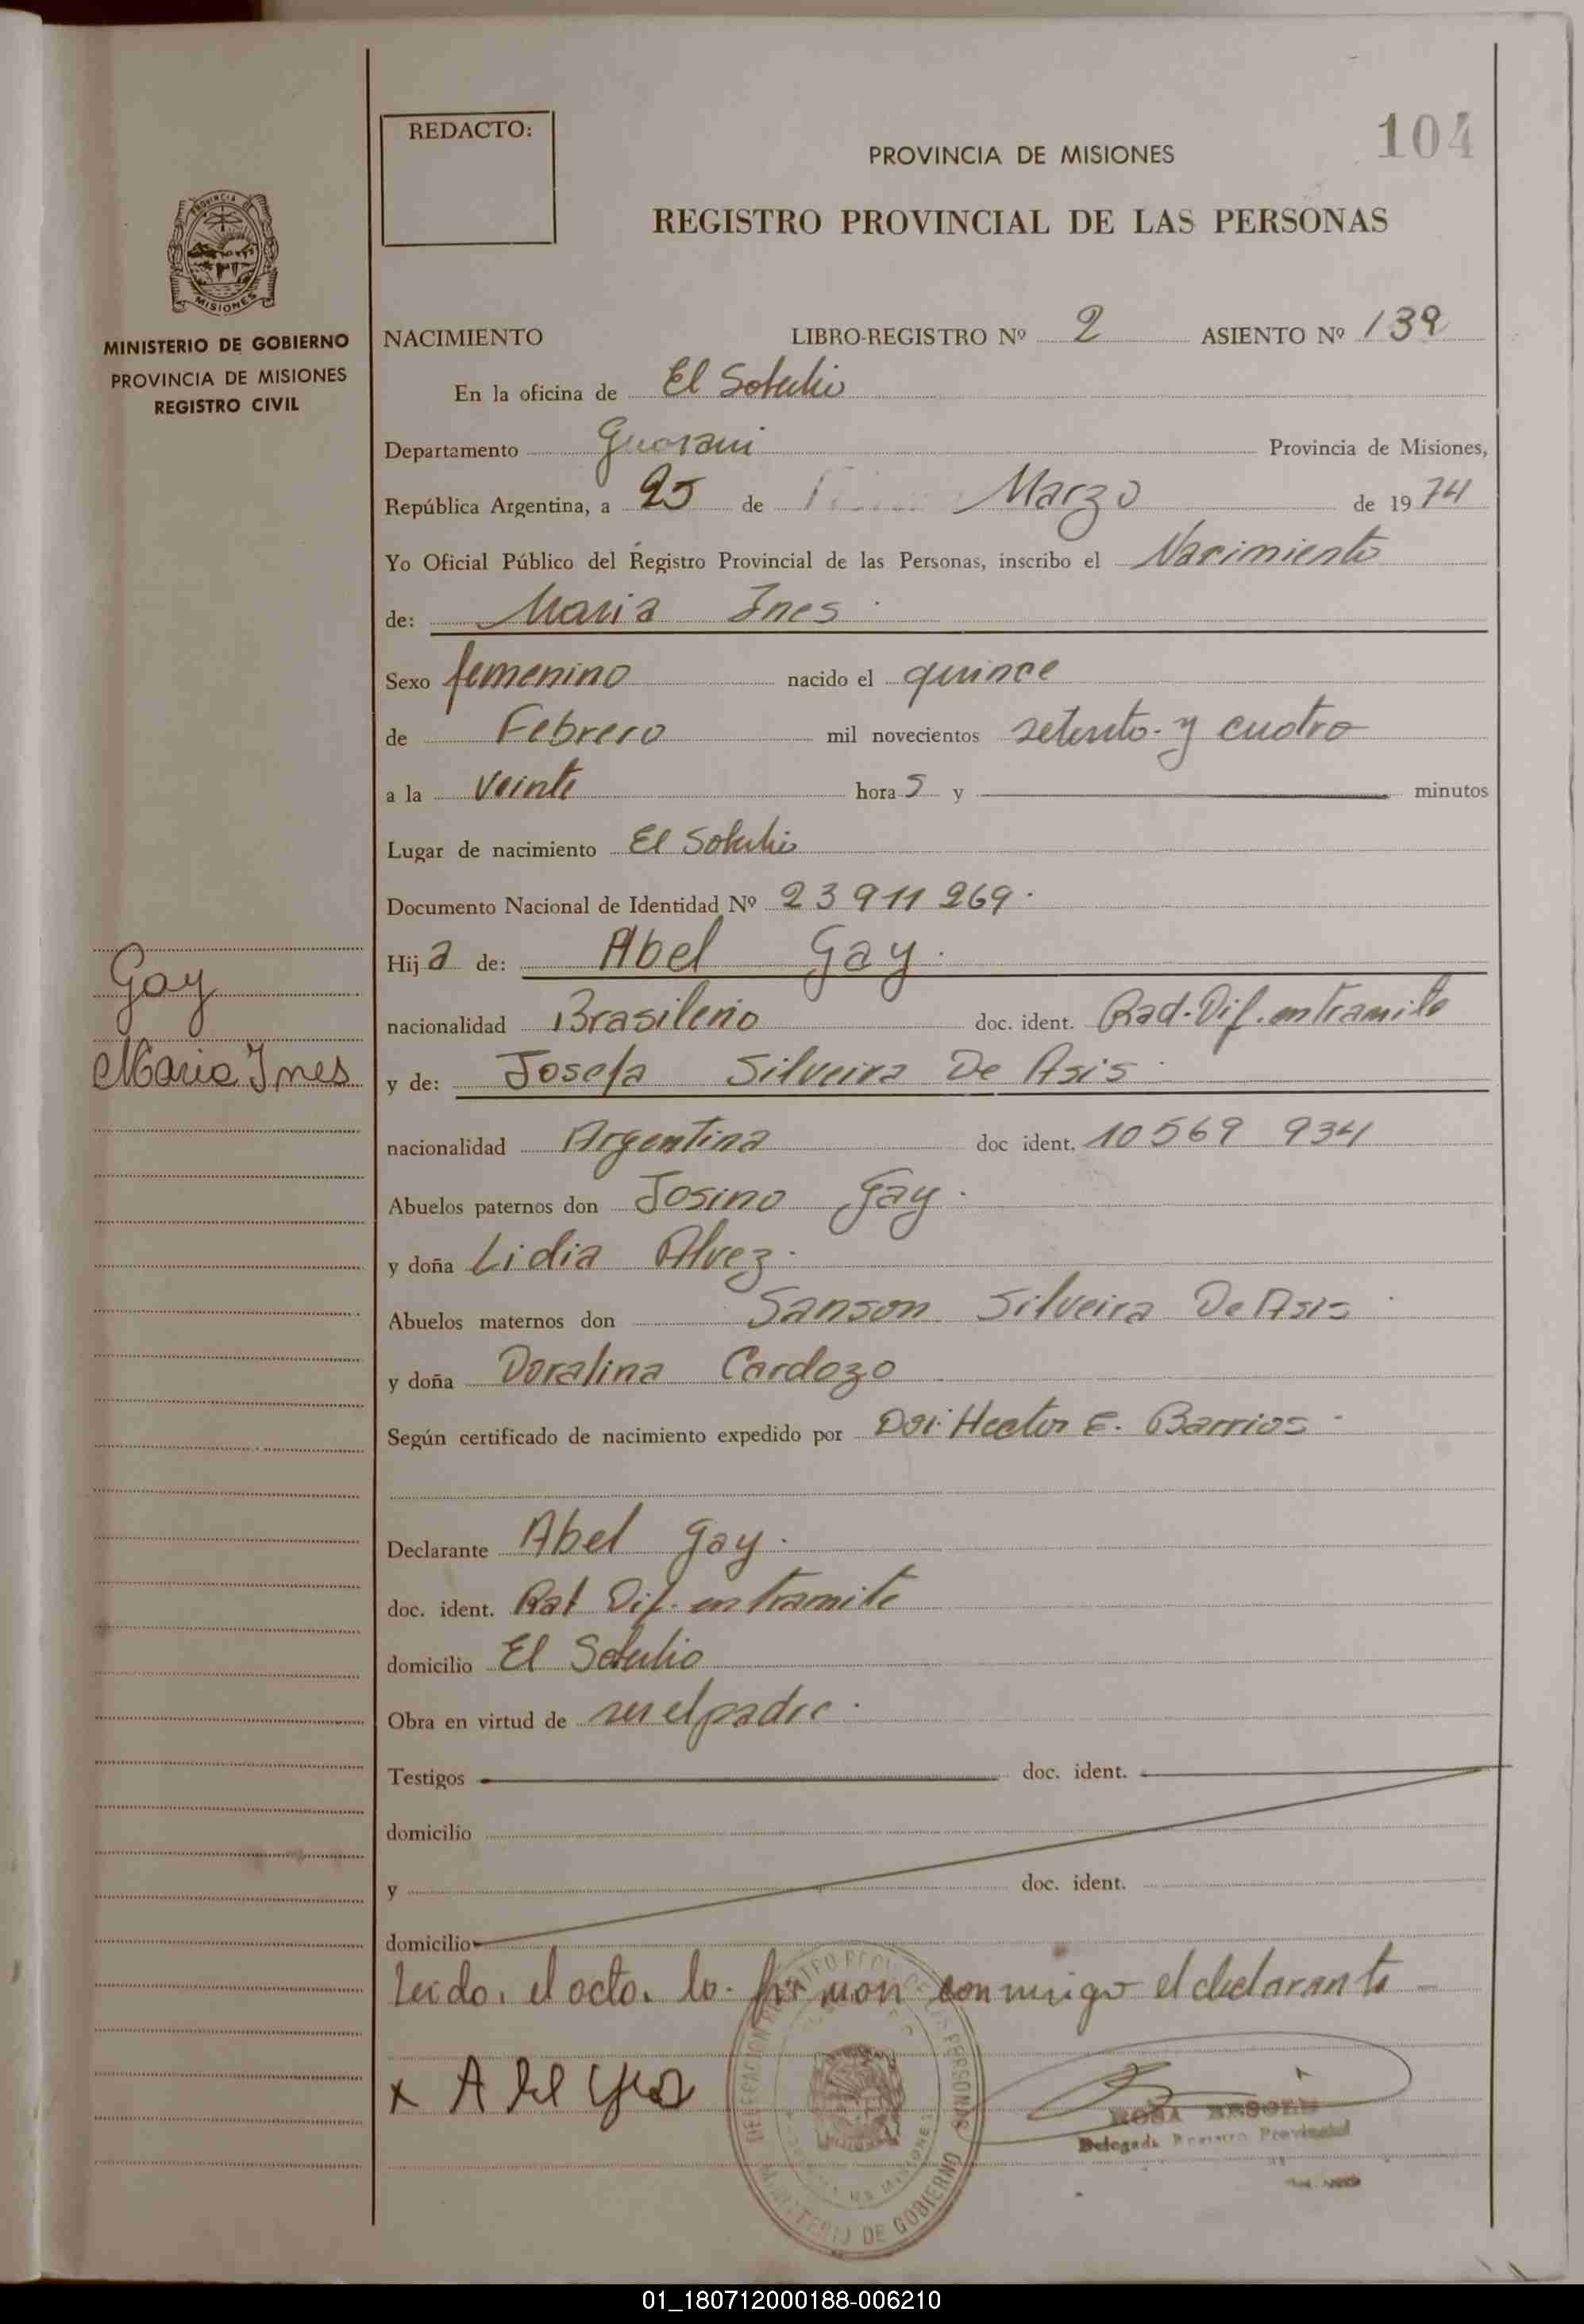 REDACTO:
104
PROVINCIA DE MISIONES
REGISTRO PROVINCIAL DE LAS PERSONAS
PROVINCIA DE
MISIONES
MINISTERIO DE GOBIERNO
PROVINCIA DE MISIONES
REGISTRO CIVIL
NACIMIENTO LIBRO-REGISTRO Nº 2 ASIENTO Nº 139
En la oficina de El Soberbio
Departamento Guarani Provincia de Misiones,
República Argentina, a 25 de Marzo de 1974
Yo Oficial Público del Registro Provincial de las Personas, inscribo el Nacimiento
de: Maria Ines
Sexo femenino nacido el quince
de Febrero mil novecientos setenta y cuatro
a la veinte horas y minutos
Lugar de nacimiento El Soberbio
Documento Nacional de Identidad Nº 23 911 269.
Hija de: Abel Gay.
Gay
nacionalidad Brasileño doc. ident. Rad. Dif. en tramite
Maria Ines
y de: Josefa Silveira De Asis
nacionalidad Argentina doc ident. 10 569 934
Abuelos paternos don Josino Gay.
y doña Lidia Alvez.
Abuelos maternos don Sanson Silveira De Asis
y doña Doralina Cardozo
Según certificado de nacimiento expedido por Hector E. Barrios
Declarante Abel Gay.
doc. ident. Rad Dif. en tramite
domicilio El Soberbio
Obra en virtud de ser el padre.
Testigos doc. ident.
domicilio
y doc. ident.
domicilio
Leido, el acta, la firman conmigo el declarante
x
ROSA
Delegada Registro Provincial
MINISTERIO DE GOBIERNO
01_180712000188-006210